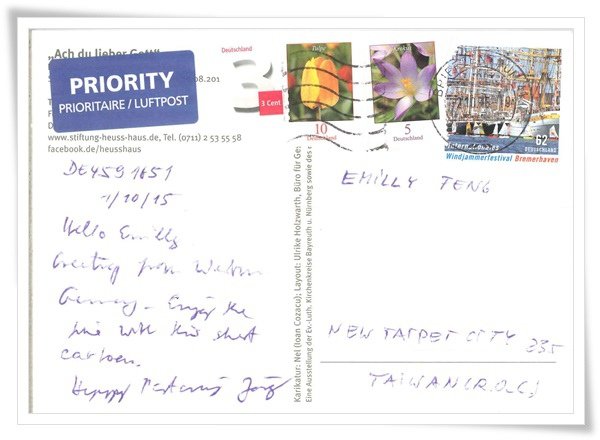 „Ach du lieber Gott“
.08.201
PRIORITY
PRIORITAIRE / LUFTPOST
www.stiftung-heuss-haus.de, Tel. (0711) 2 53 55 58
facebook.de/heusshaus
Deutschland
3
3 Cent
Tulpe
10
Deutschland
Krokus
5
Deutschland
Internationales
Windjammerfestival Bremerhaven
62
DEUTSCHLAND
DE4591651
1/10/15
Hello Emilly
Greeting from
Germany. Enjoy the
time with this short
cartoon.
Happy Jörg
Karikatur: Nel (Ioan Cozacu); Layout: Ulrike Holzwarth, Büro für Ge
Eine Ausstellung der Ev.-Luth. Kirchenkreise Bayreuth u. Nürnberg sowie des
EMILLY TENG
NEW TAIPEI CITY 335
TAIWAN (R.O.C)